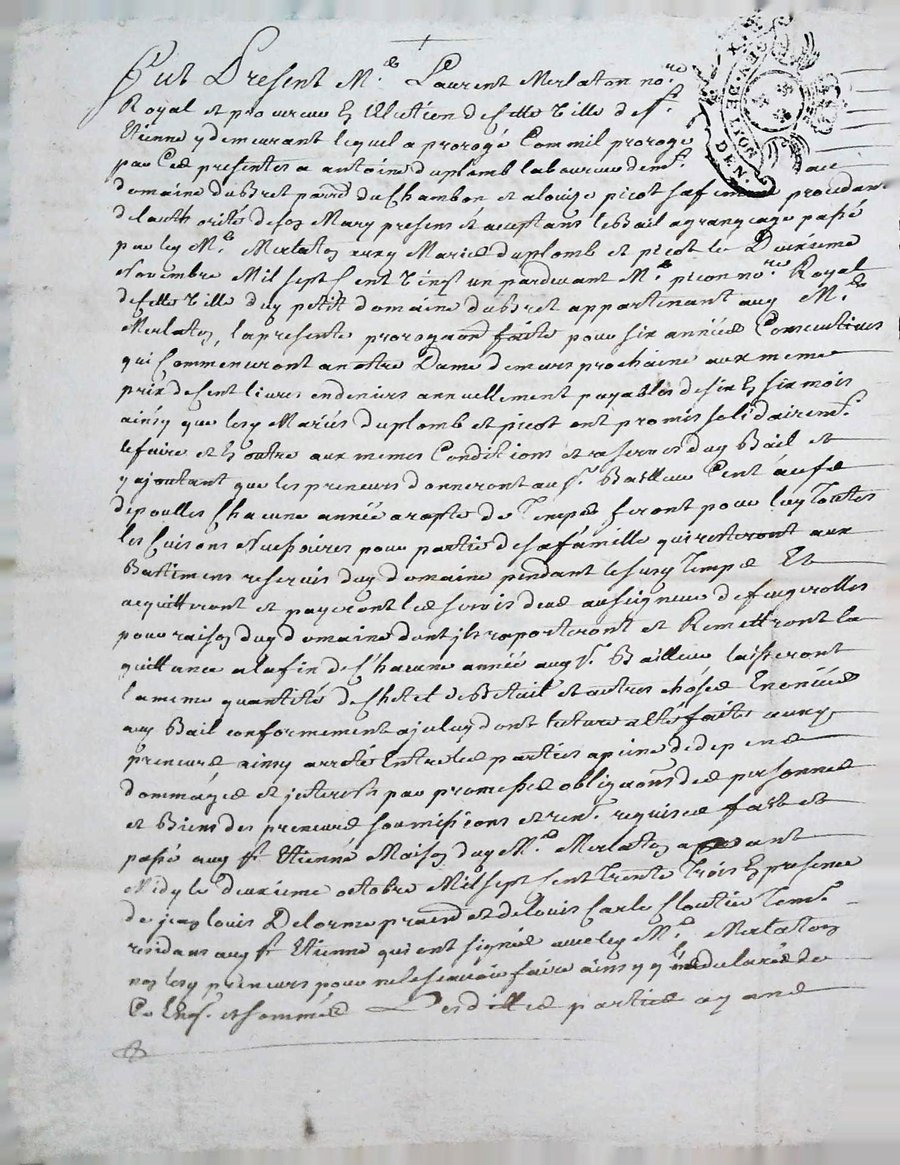 GEN. DE LION
DEN.
Fut Present Me Laurent Merlaton nore
Royal et procureur en Election de cette Ville de St
Etienne y demeurant lequel a prorogé Comm il proroge
par Ces presentes a antoine duplomb laboureur demt au
domaine dubret parsse du Chambon et alouize picot sa femme procedant
de lauthorite de son Mary presents et aceptans le Bail a grangeage passé
par ley Me Merlaton auxy Mariés duplomb et picot le Deuxieme
Novembre Mil sept Cent Vingt un pardevant Me picon nore Royal
de cette Ville duy petit domaine dubret appartenant auy Me
Merlaton, la presente prorogaon faite pour six années Consecutives
qui Commenceront a notre Dame de mars prochaine aux meme
prix de Cent livres en deniers annuellement payables de six en six mois
ainsy que lesy Mariés duplomb et picot ont promis solidairemt
le faire et En outre aux memes Conditions et reserves duy Bail et
y ajoutant que les preneurs donneront au sr Bailleur Cent œufs
de poulles Chacune année a reste de Temps feront pour luy Toutes
les Cuisons Necessoires pour partie de sa famille qui resteront aux
Batiments reservés duy domaine pendant le susy Temps Et
acquitteront et payeront les servis deus au seigneur de feugerolles
pour raison duy domaine dont ils raporteront et Remettront la
quittance a la fin de Chacune année auy sr Bailleur laisseront
la meme quantité de Chetel de Betail et autres choses Enoncées
auy Bail conformement a jceluy dont lecture a été faite auxy
preneurs ainsy arreté Entre les parties a peine de depens
dommages et jnterests par promesses obligaons des personnes
et Biens des preneurs soumissions et ren. requises fait et
passé auy St Etienne Maison duy Me Merlaton avant
Midy le deuxieme octobre Mil sept Cent Trente Trois En presence
de jean Louis Delorme pratn et de Louis Carle Cloutier Temt
residans auy St Etienne qui ont signé avec ley Me Merlaton
non lesy preneurs pour ne le scavoir faire ainsy qu'ils ont declaré de
Ce Enqs et sommés Lesdittes parties ayans